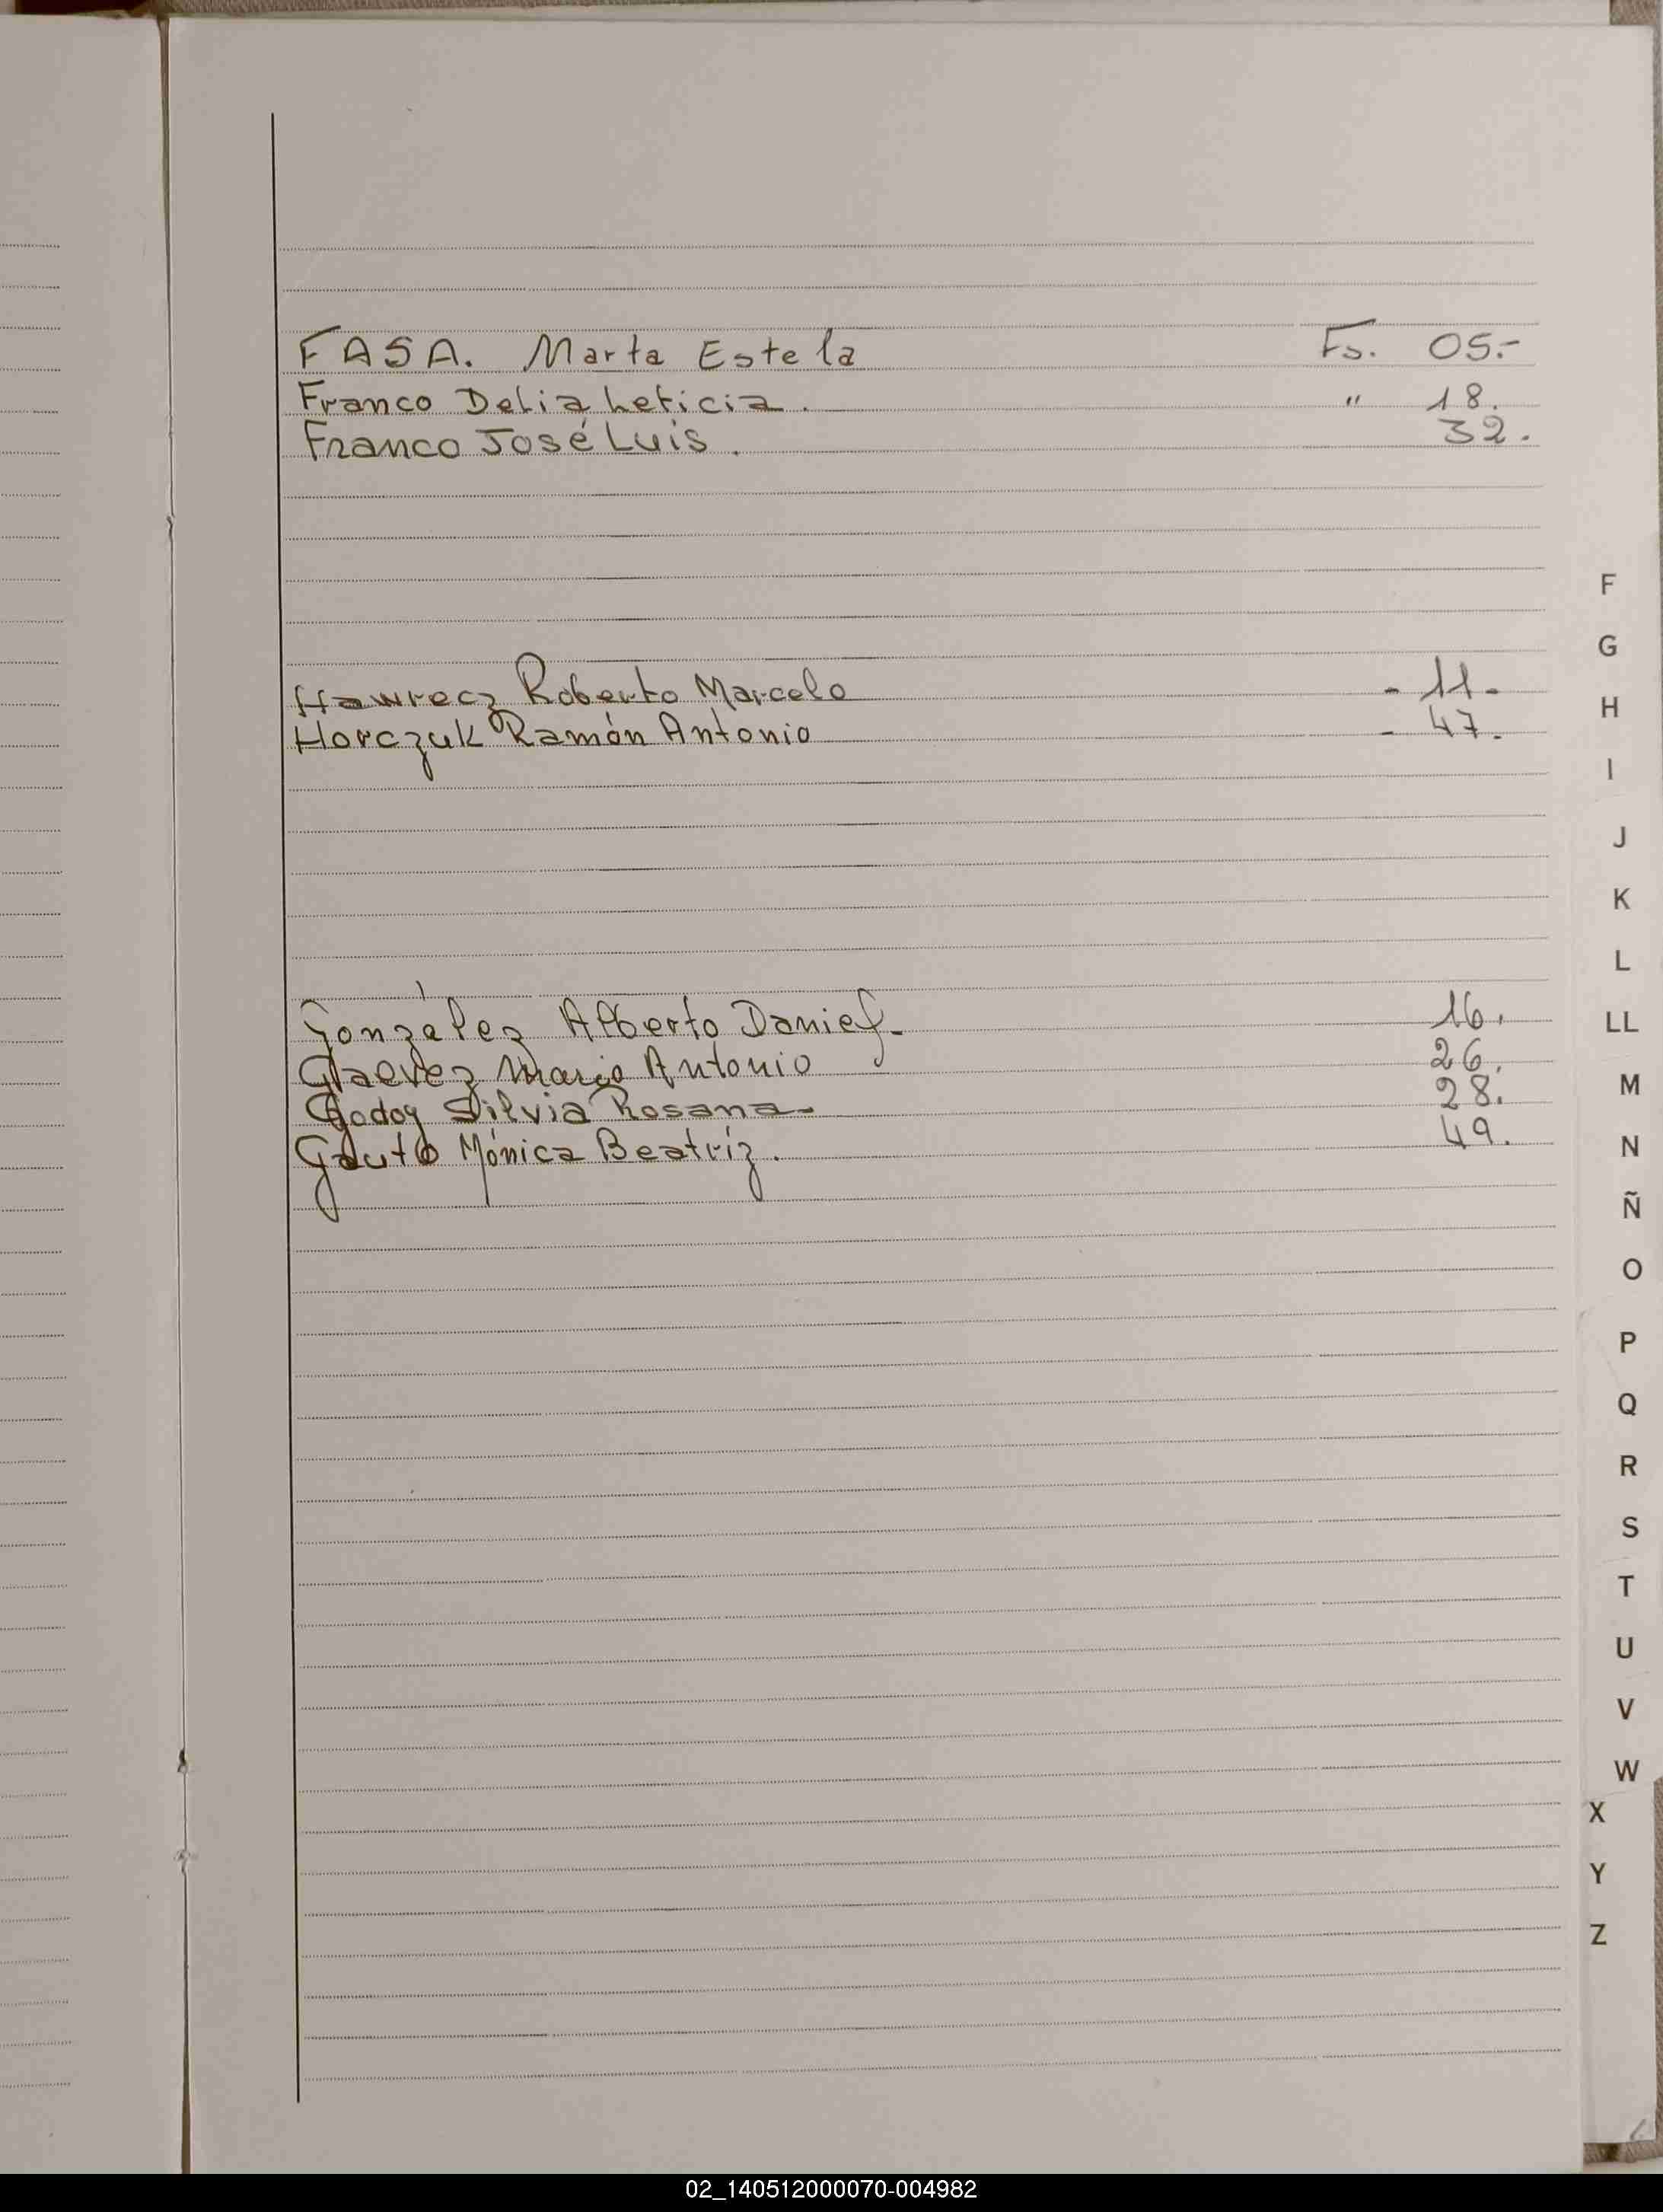 FASA. Marta Estela Fs. 05.-
Franco Delia Leticia. " 18.
Franco José Luis. 32.
Hawrecz Roberto Marcelo - 11-
Horczuk Ramón Antonio - 47.
Gonzàlez Alberto Daniel- 16.
Mario Antonio 26.
Godoy Silvia Rosana- 28.
Gauto Mónica Beatríz. 49.
F
G
H
I
J
K
L
LL
M
N
Ñ
O
P
Q
R
S
T
U
V
W
X
Y
Z
02_140512000070-004982